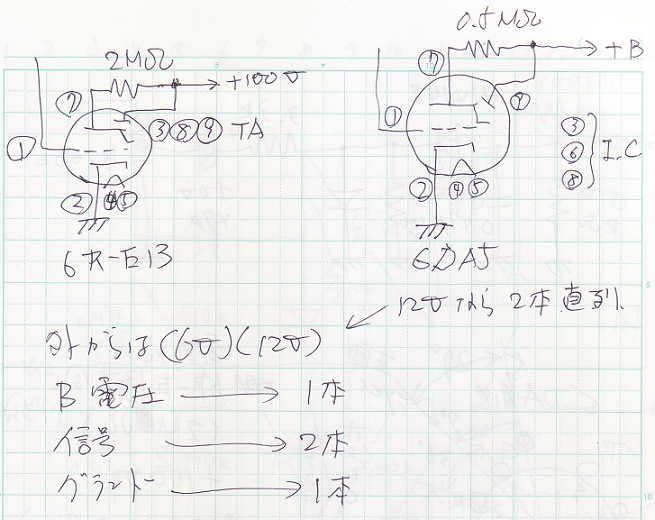 2MΩ
+100V
⑦
①
③⑧⑨ TA
②
④⑤
6R-E13
0.5MΩ
+B
⑦
①
⑨
②
④⑤
③
⑥
⑧
I.C
6DA5
12Vなら 2本 直列
外からは (6V)(12V)
B 電圧 → 1本
信号 → 2本
グランド → 1本
5
10
5
10